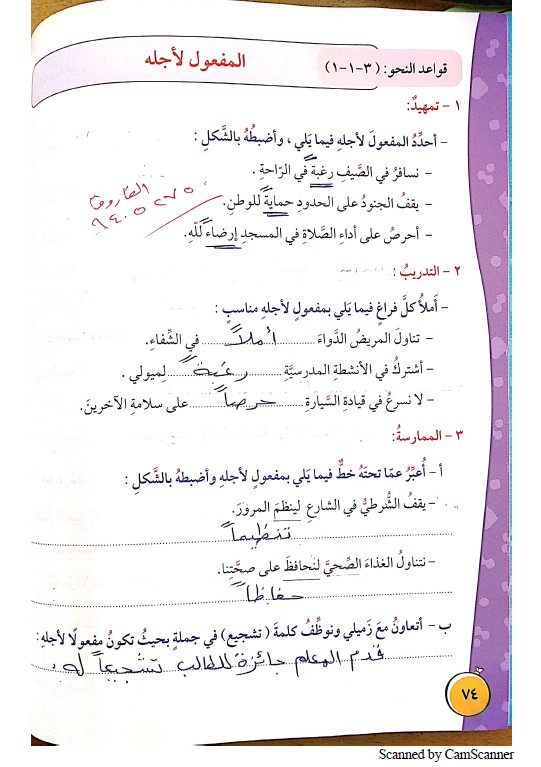 قواعد النحو: (٣-١-١)
المفعول لأجله
١ - تمهيدٌ:
- أحدِّدُ المفعولَ لأجلهِ فيما يَلي، وأضبطُهُ بالشَّكلِ:
- نسافرُ في الصَّيفِ رغبةً في الرّاحةِ.
- يقفُ الجنودُ على الحدودِ حمايةً للوطنِ.
- أحرصُ على أداءِ الصَّلاةِ في المسجدِ إرضاءً للّهِ.
٢ - التدريبُ:
- أملأُ كلَّ فراغٍ فيما يَلي بمفعولٍ لأجلهِ مناسبٍ:
- تناولَ المريضُ الدَّواءَ أملاً في الشِّفاءِ.
- أشتركُ في الأنشطةِ المدرسيَّةِ رغبةً لميولي.
- لا نسرعُ في قيادةِ السَّيارةِ حرصاً على سلامةِ الآخرينَ.
٣ - الممارسةُ:
أ - أعبِّرُ عمّا تحتَهُ خطٌّ فيما يَلي بمفعولٍ لأجلهِ وأضبطهُ بالشَّكلِ:
- يقفُ الشُّرطيُّ في الشارعِ لينظمَ المرورَ.
تنظيماً
- نتناولُ الغذاءَ الصِّحيَّ لنحافظَ على صحَّتِنا.
حفاظاً
ب - أتعاونُ معَ زَميلي ونوظِّفُ كلمةَ (تشجيع) في جملةٍ بحيثُ تكونُ مفعولًا لأجلهِ:
قدم المعلم جائزة للطالب تشجيعاً له
٧٤
Scanned by CamScanner